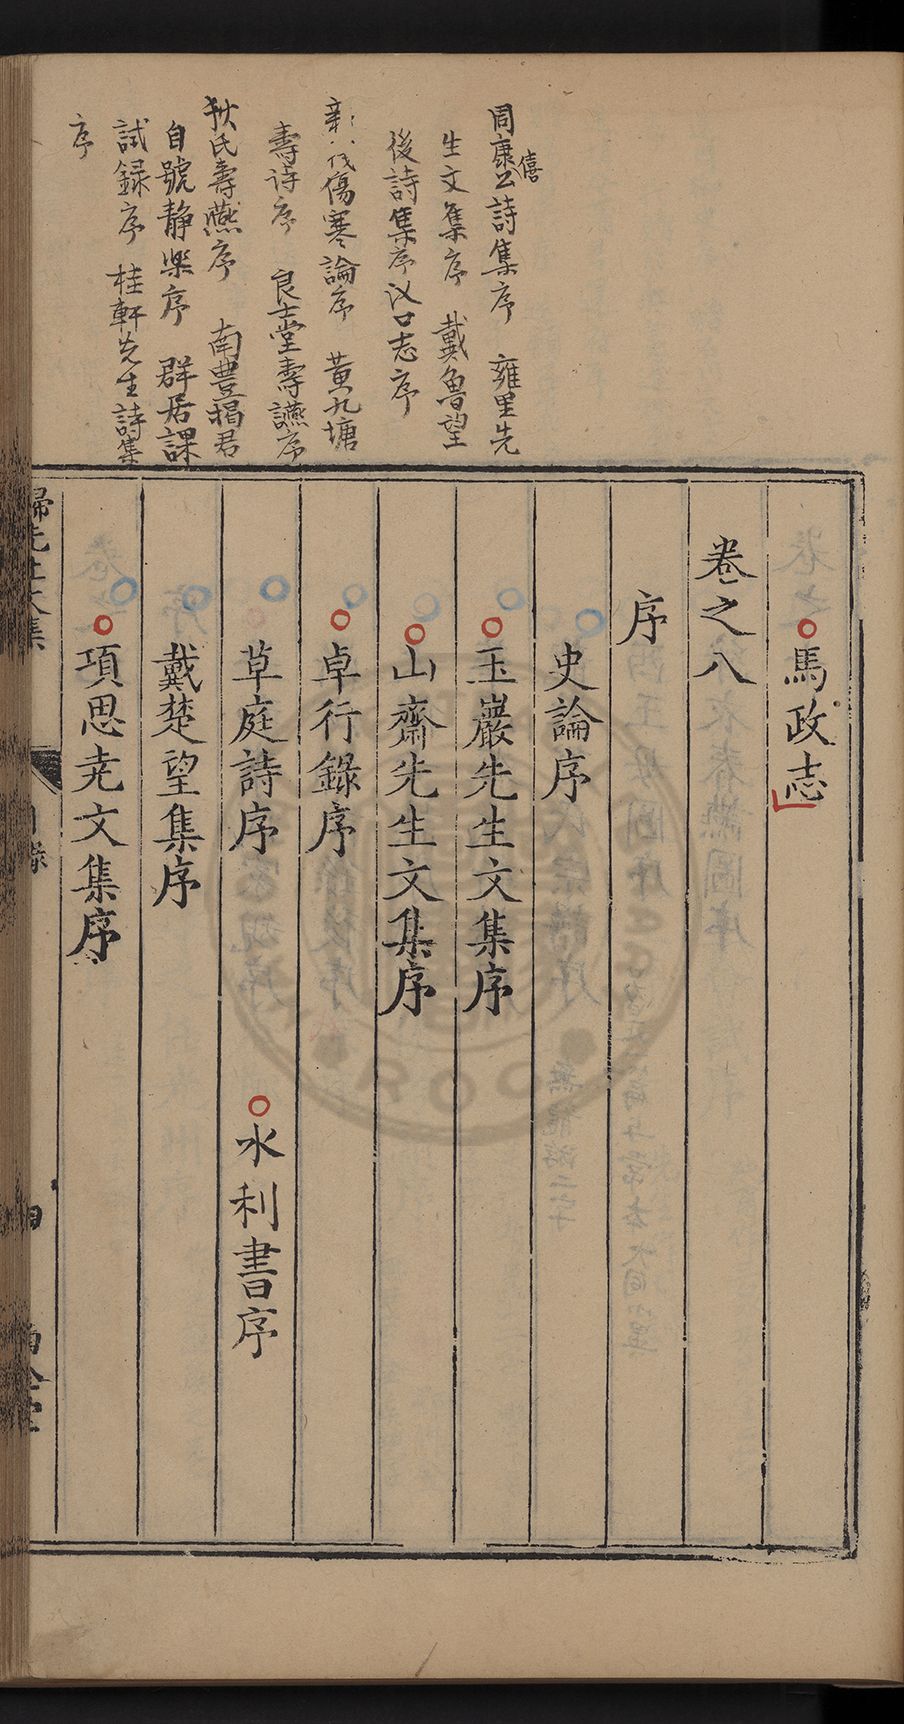 周康僖公詩集序　雍里先
生文集序　戴魯望
後詩集序　汊口志序
傷寒論序　黃九塘
壽詩序　良士堂壽讌序
狄氏壽燕序　南豐揭君
自號靜樂序　群居課
試録序　桂軒先生詩集
序
馬政志
卷之八
序
史論序
玉巖先生文集序
山齋先生文集序
卓行錄序
草庭詩序　水利書序
戴楚望集序
項思尭文集序